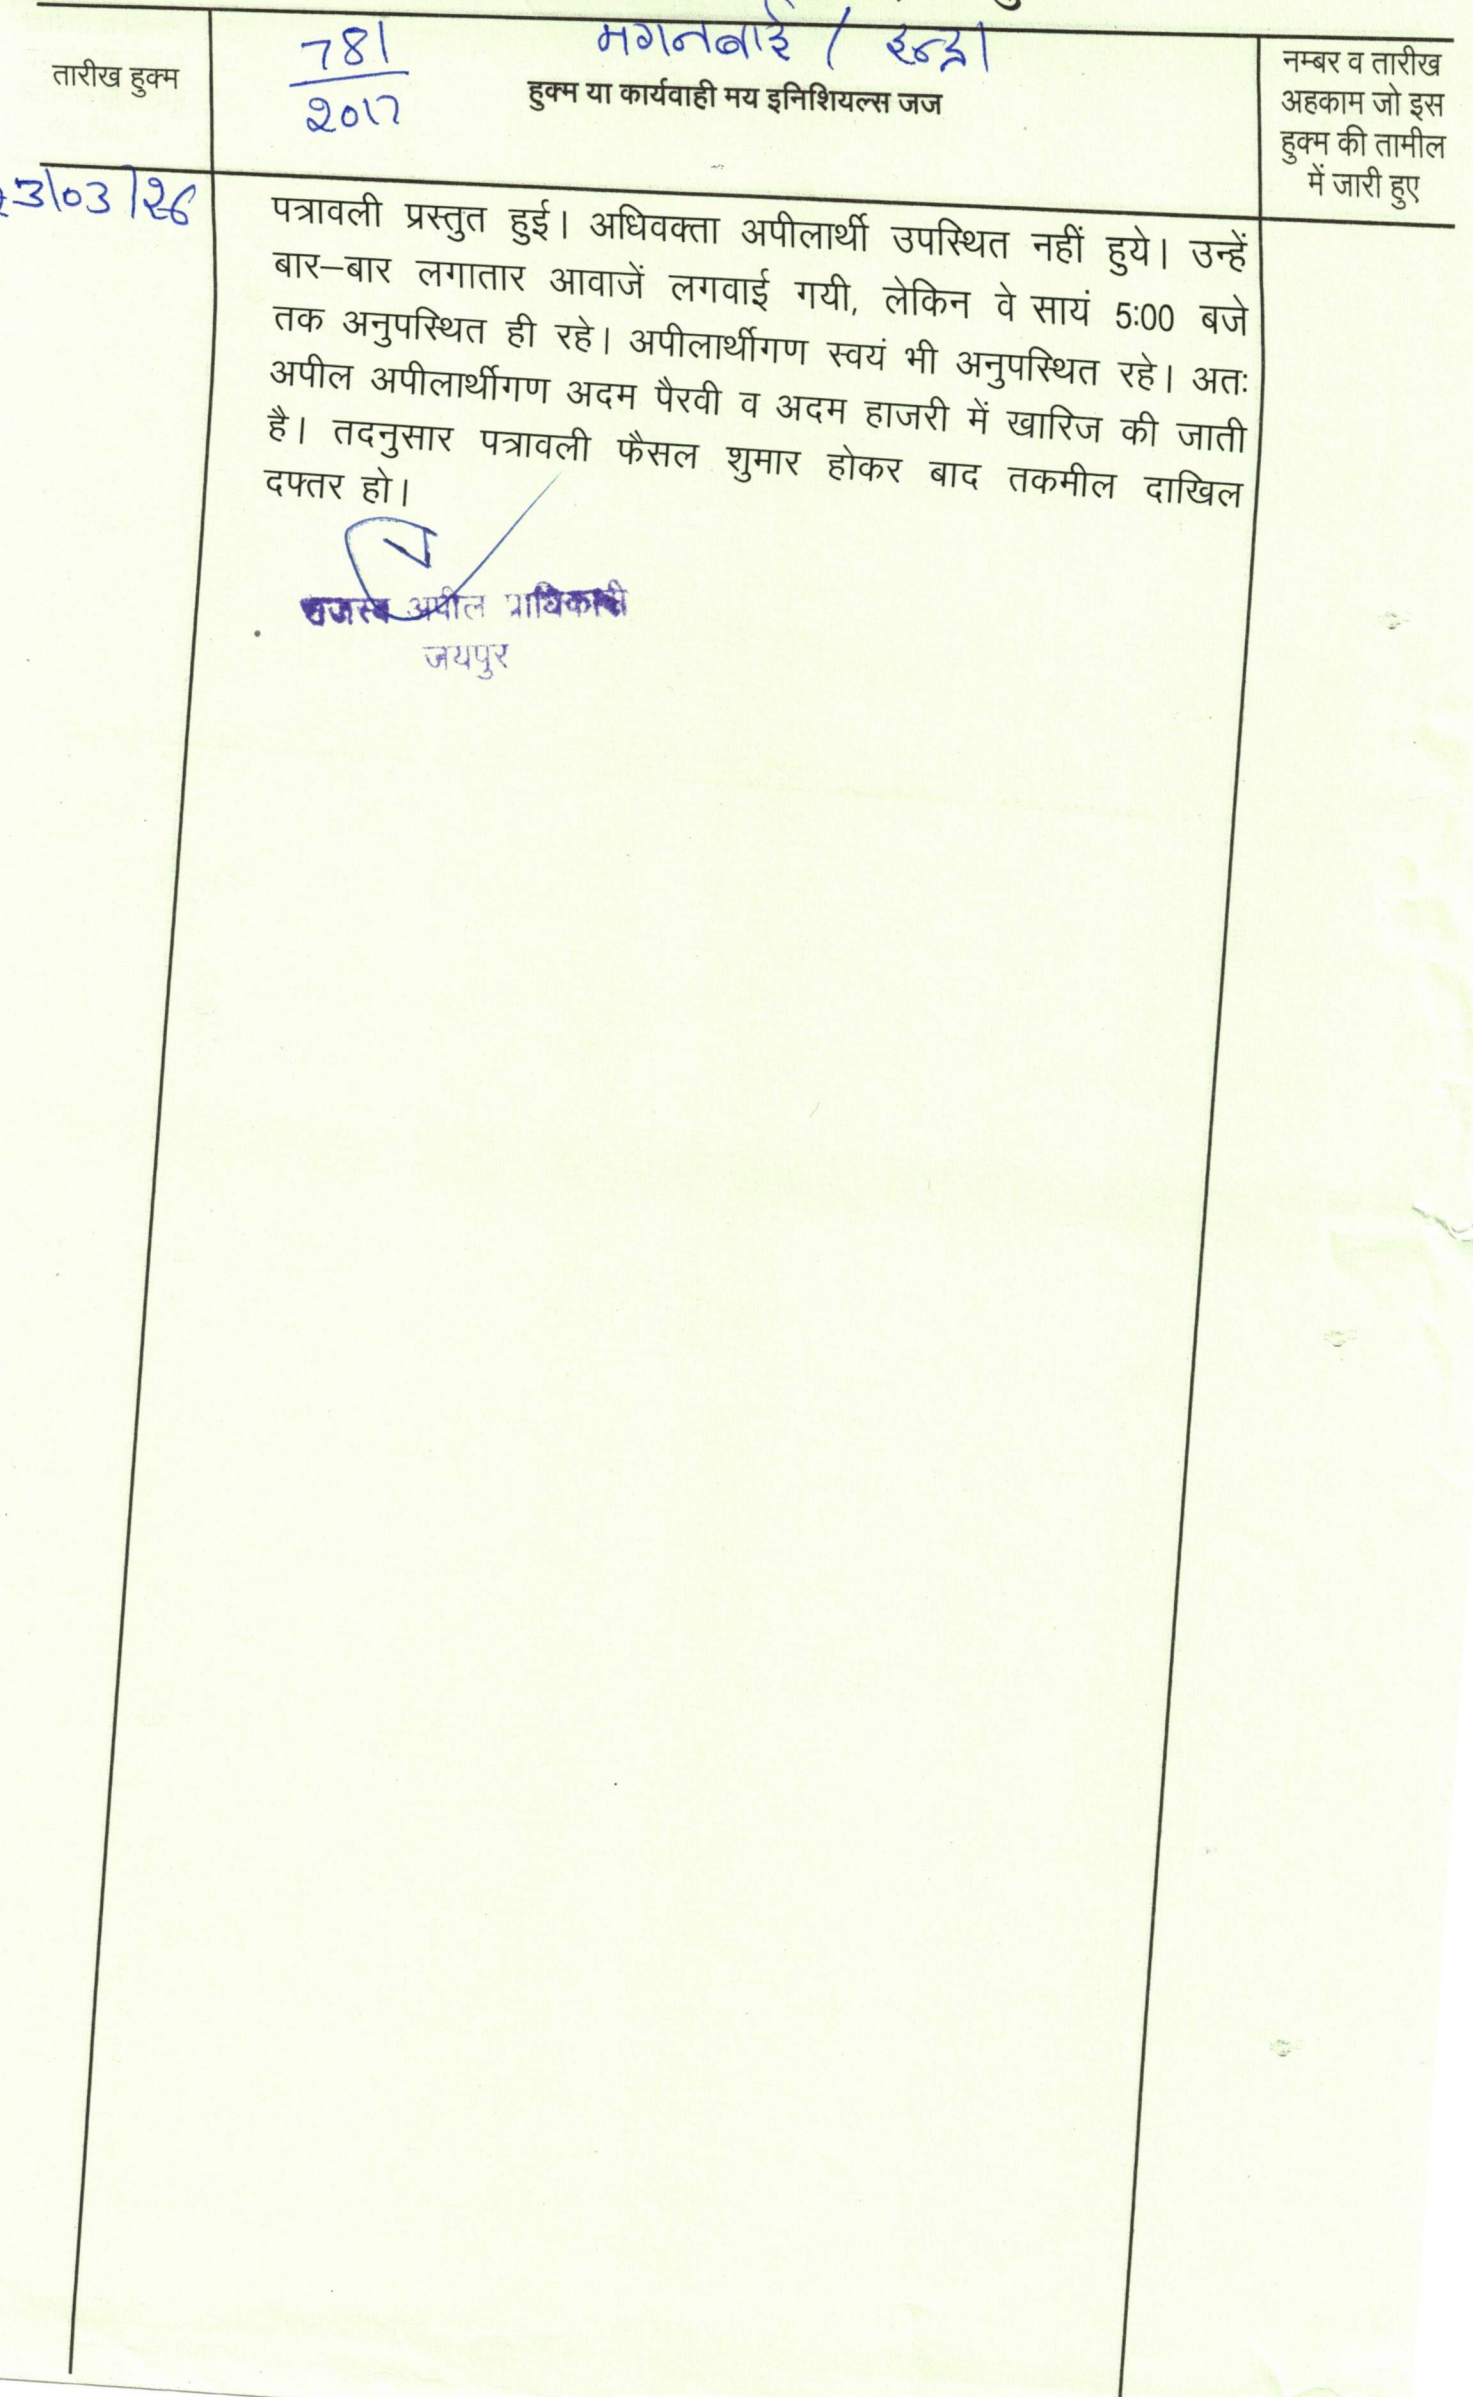 तारीख हुक्म
781
2017
मगनबाई / इन्द्रा
हुक्म या कार्यवाही मय इनिशियल्स जज
नम्बर व तारीख
अहकाम जो इस
हुक्म की तामील
में जारी हुए
3/03/26
पत्रावली प्रस्तुत हुई। अधिवक्ता अपीलार्थी उपस्थित नहीं हुये। उन्हें
बार–बार लगातार आवाजें लगवाई गयी, लेकिन वे सायं 5:00 बजे
तक अनुपस्थित ही रहे। अपीलार्थीगण स्वयं भी अनुपस्थित रहे। अतः
अपील अपीलार्थीगण अदम पैरवी व अदम हाजरी में खारिज की जाती
है। तदनुसार पत्रावली फैसल शुमार होकर बाद तकमील दाखिल
दफ्तर हो।
राजस्व अपील प्राधिकारी
जयपुर